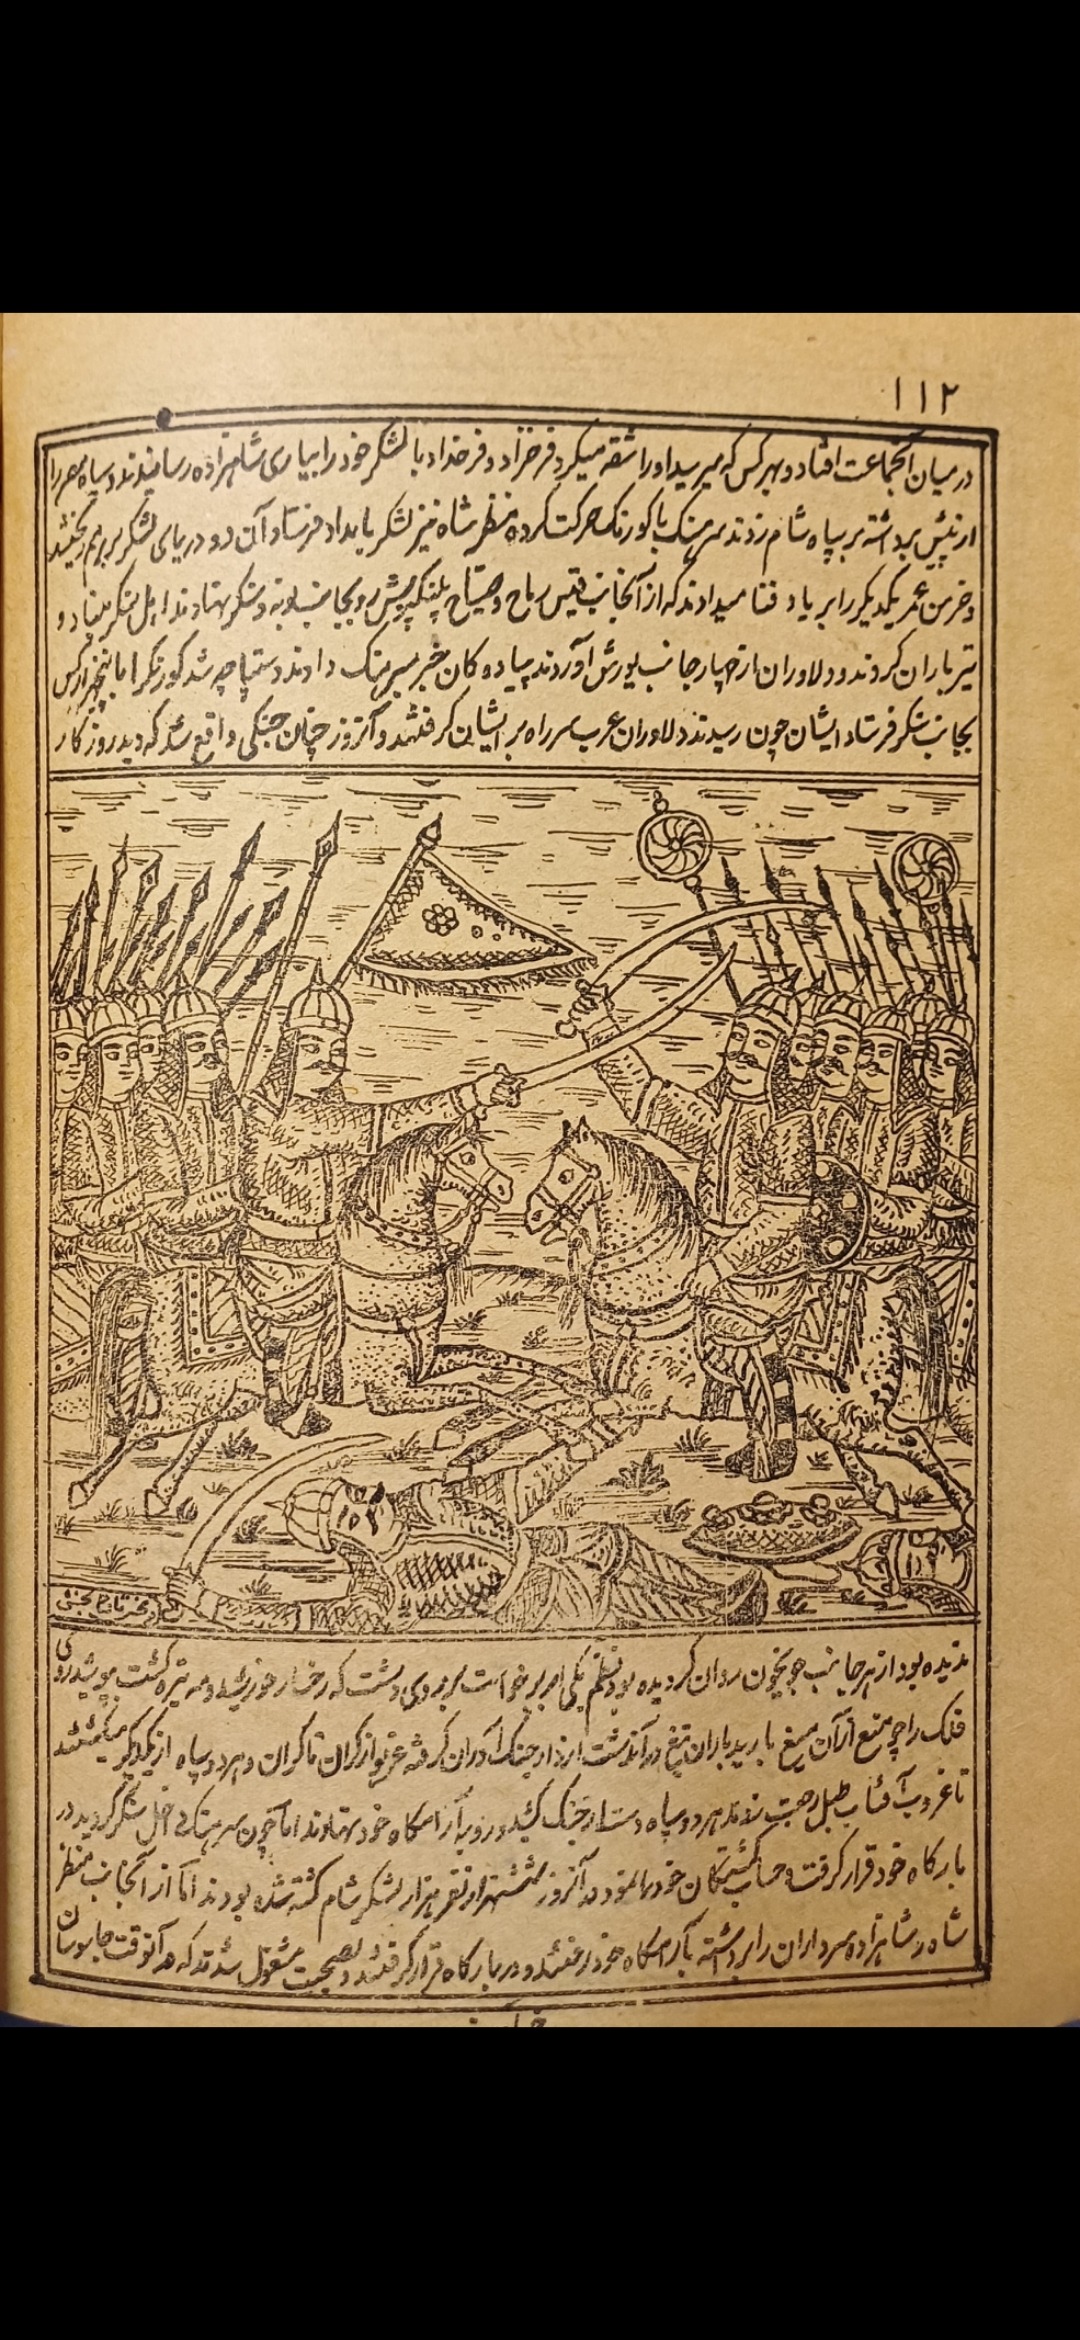 ۱۱۲
در میان آنجماعت افتاد و بهر کس که میرسید او را شقه میکرد فرخزاد و فرخداد با لشکر خود را بیاری شاهزاده رسانیدند و سپاه مصر را
از پیش برداشته بر سپاه شام زدند سرهنگ با کورنک حرکت کرده منظر شاه نیز لشکر بامداد فرستاد آن دو دریای لشکر بر برهم ریختند
و خرمن عمر یکدیگر را بر باد فنا میدادند که از آنجانب قیس رماح و صیاح پلنگینه پوش رو بجانب لوبه و سنکر نهادند اهل سنکر بنیاد
تیر باران کردند و دلاوران از چهار جانب یورش آوردند پیاده کان خبر بسرهنگ دادند دستپاچه شد کورنگ را با پنجهزار کس
بجانب سنکر فرستاد ایشان چون رسیدند دلاوران عرب سر راه بر ایشان گرفتند و آنروز چنان جنگی واقع شد که دیده روزگار
ندیده بود از هر جانب جوی خون روان گردیده بود بنظم یکی ابر برخواست بر روی دشت که رخسار خورشید و مه تیره گشت بپوشید روی
فلک را چو میغ از آن میغ بارید باران تیغ در آندشت
تا غروب آفتاب طبل رجعت زدند هر دو سپاه دست از جنگ کشیده رو به آرامگاه خود نهادند اما چون سرهنگ داخل سنکر گردید در
بارگاه خود قرار گرفت و حساب کشتگان خود را نمود در آنروز هزار لشکر شام کشته شده بودند اما از آنجانب منظر
شاه و شاهزاده سرداران را برداشته به آرامگاه خود رفتند و در بارگاه قرار گرفتند و بصحبت مشغول شدند که در آنوقت جاسوسان